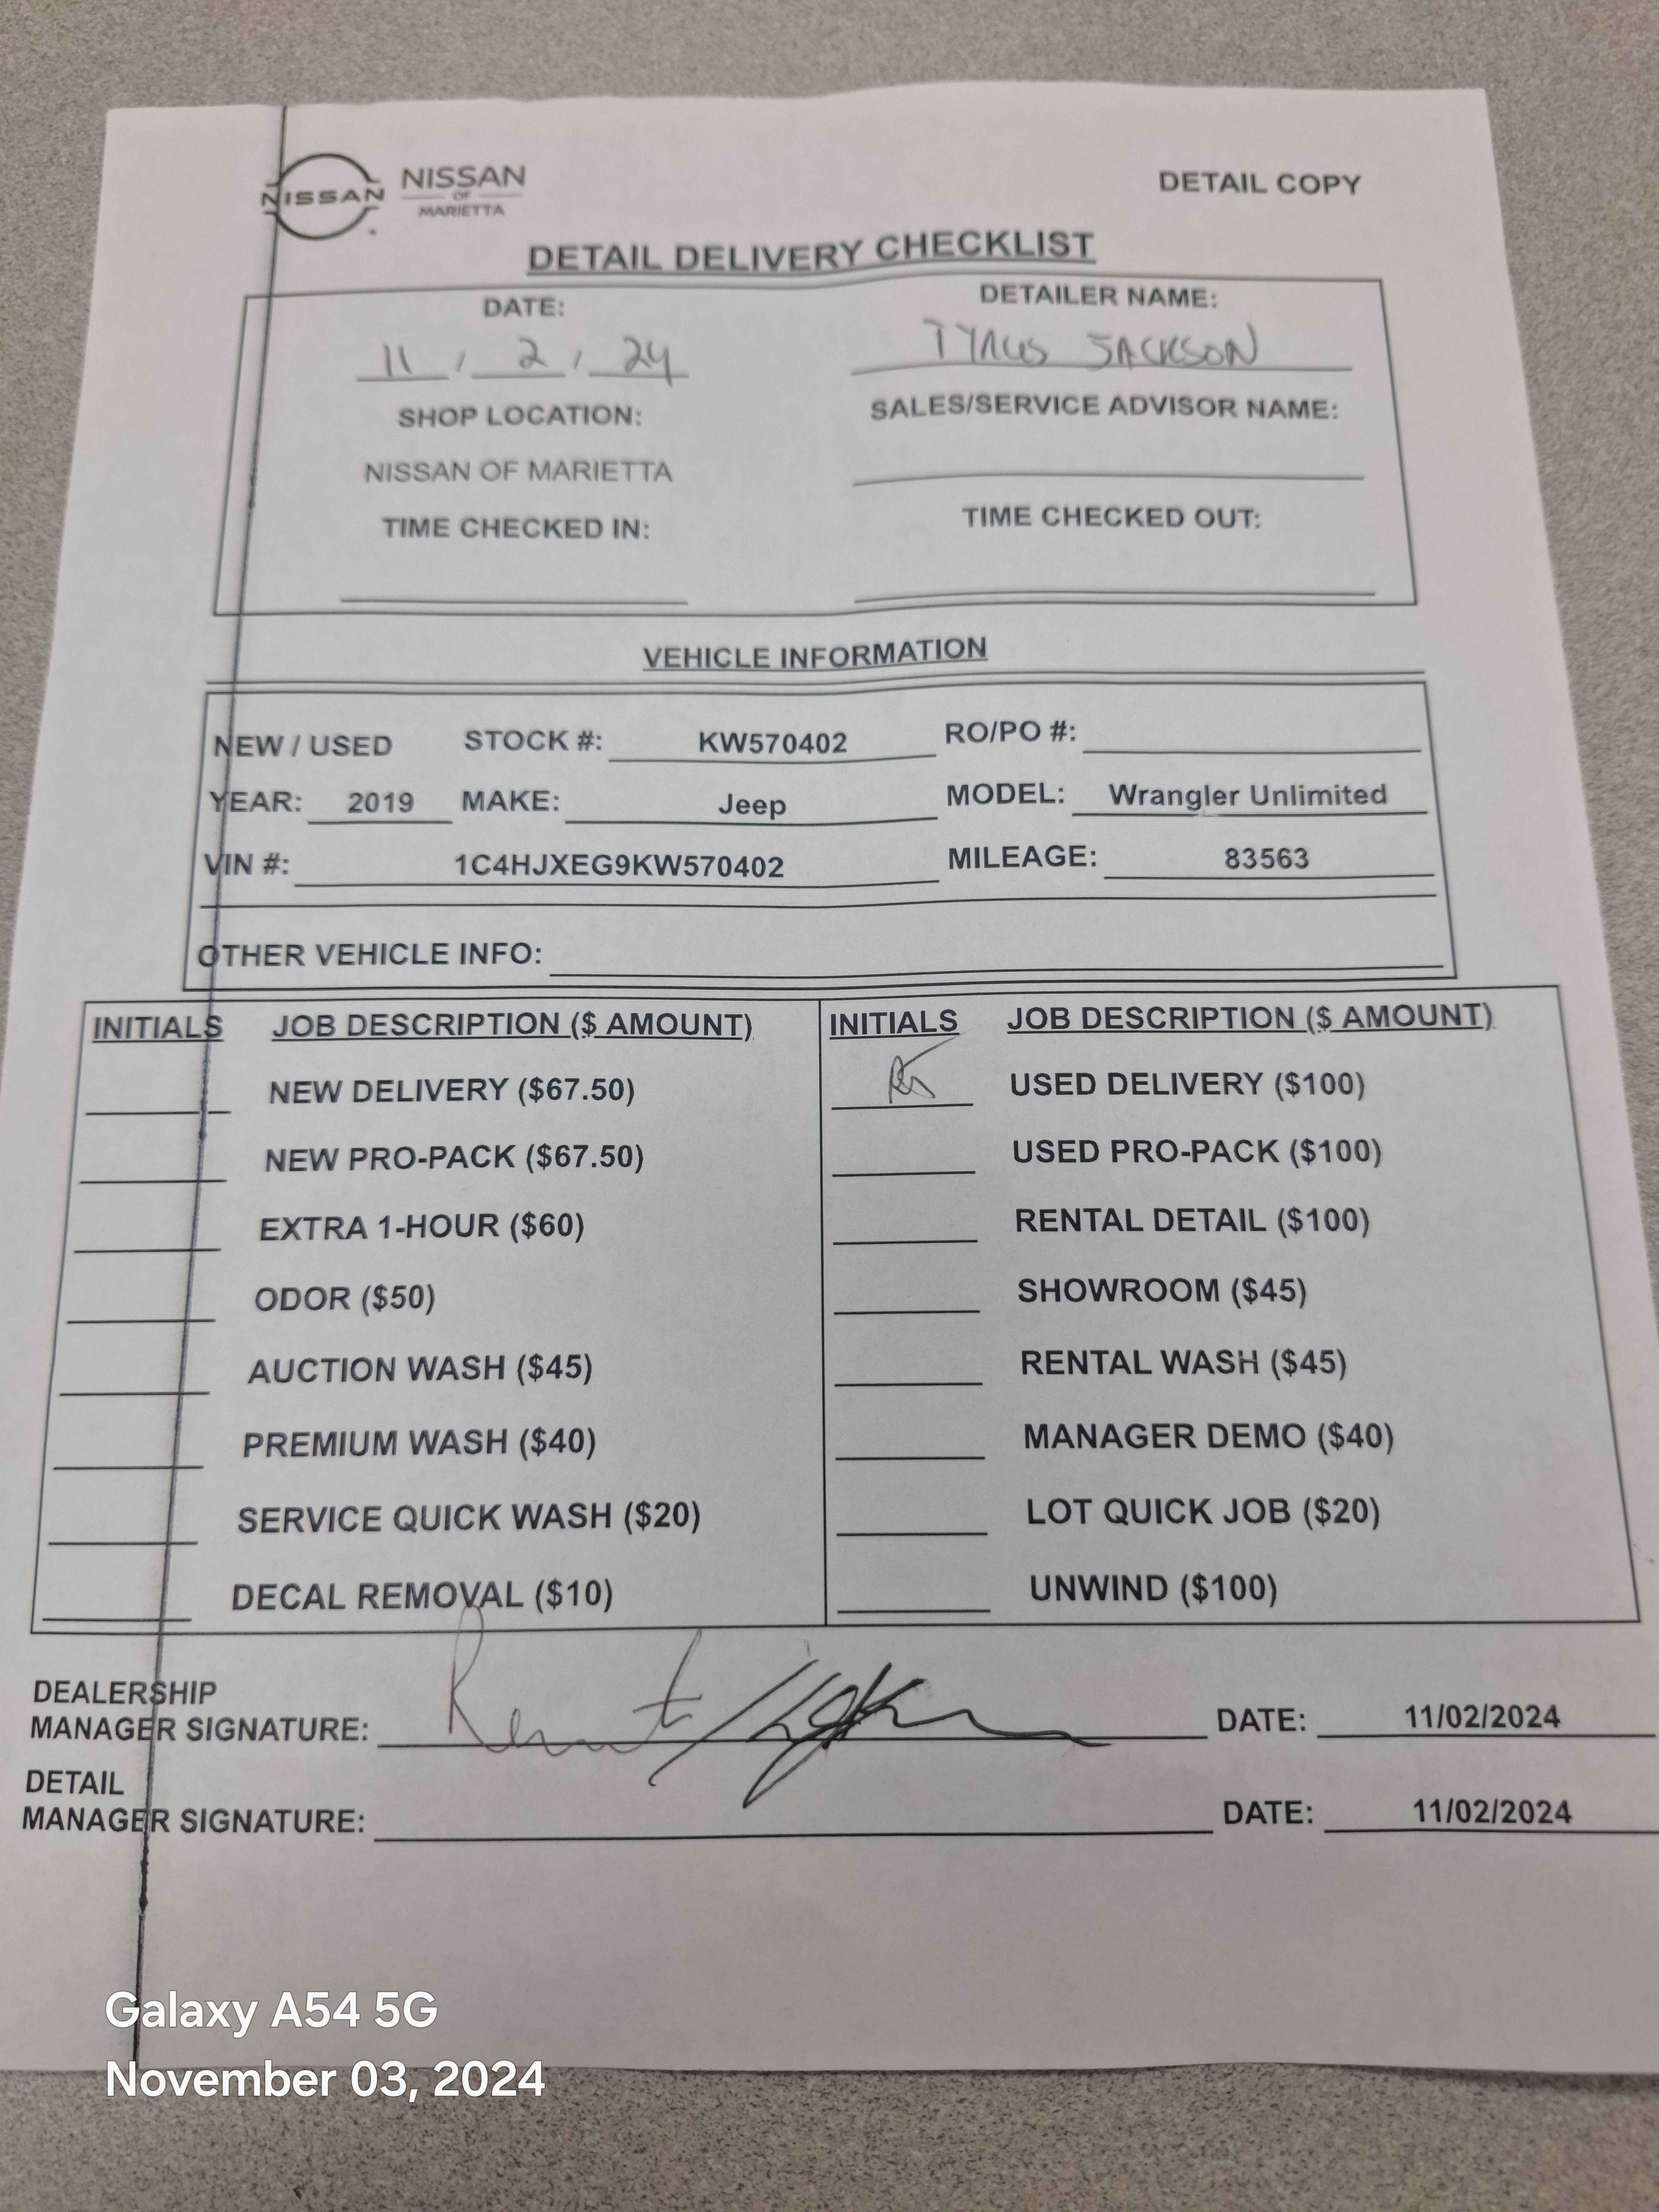 NISSAN
NISSAN
OF
MARIETTA
DETAIL COPY
DETAIL DELIVERY CHECKLIST
DATE: DETAILER NAME:
11 / 2 / 24 JACKSON
SHOP LOCATION: SALES/SERVICE ADVISOR NAME:
NISSAN OF MARIETTA
TIME CHECKED IN: TIME CHECKED OUT:
VEHICLE INFORMATION
NEW / USED STOCK #: KW570402 RO/PO #:
YEAR: 2019 MAKE: Jeep MODEL: Wrangler Unlimited
VIN #: 1C4HJXEG9KW570402 MILEAGE: 83563
OTHER VEHICLE INFO:
INITIALS JOB DESCRIPTION ($ AMOUNT) INITIALS JOB DESCRIPTION ($ AMOUNT)
NEW DELIVERY ($67.50) USED DELIVERY ($100)
NEW PRO-PACK ($67.50) USED PRO-PACK ($100)
EXTRA 1-HOUR ($60) RENTAL DETAIL ($100)
ODOR ($50) SHOWROOM ($45)
AUCTION WASH ($45) RENTAL WASH ($45)
PREMIUM WASH ($40) MANAGER DEMO ($40)
SERVICE QUICK WASH ($20) LOT QUICK JOB ($20)
DECAL REMOVAL ($10) UNWIND ($100)
DEALERSHIP
MANAGER SIGNATURE: DATE: 11/02/2024
DETAIL
MANAGER SIGNATURE: DATE: 11/02/2024
Galaxy A54 5G
November 03, 2024